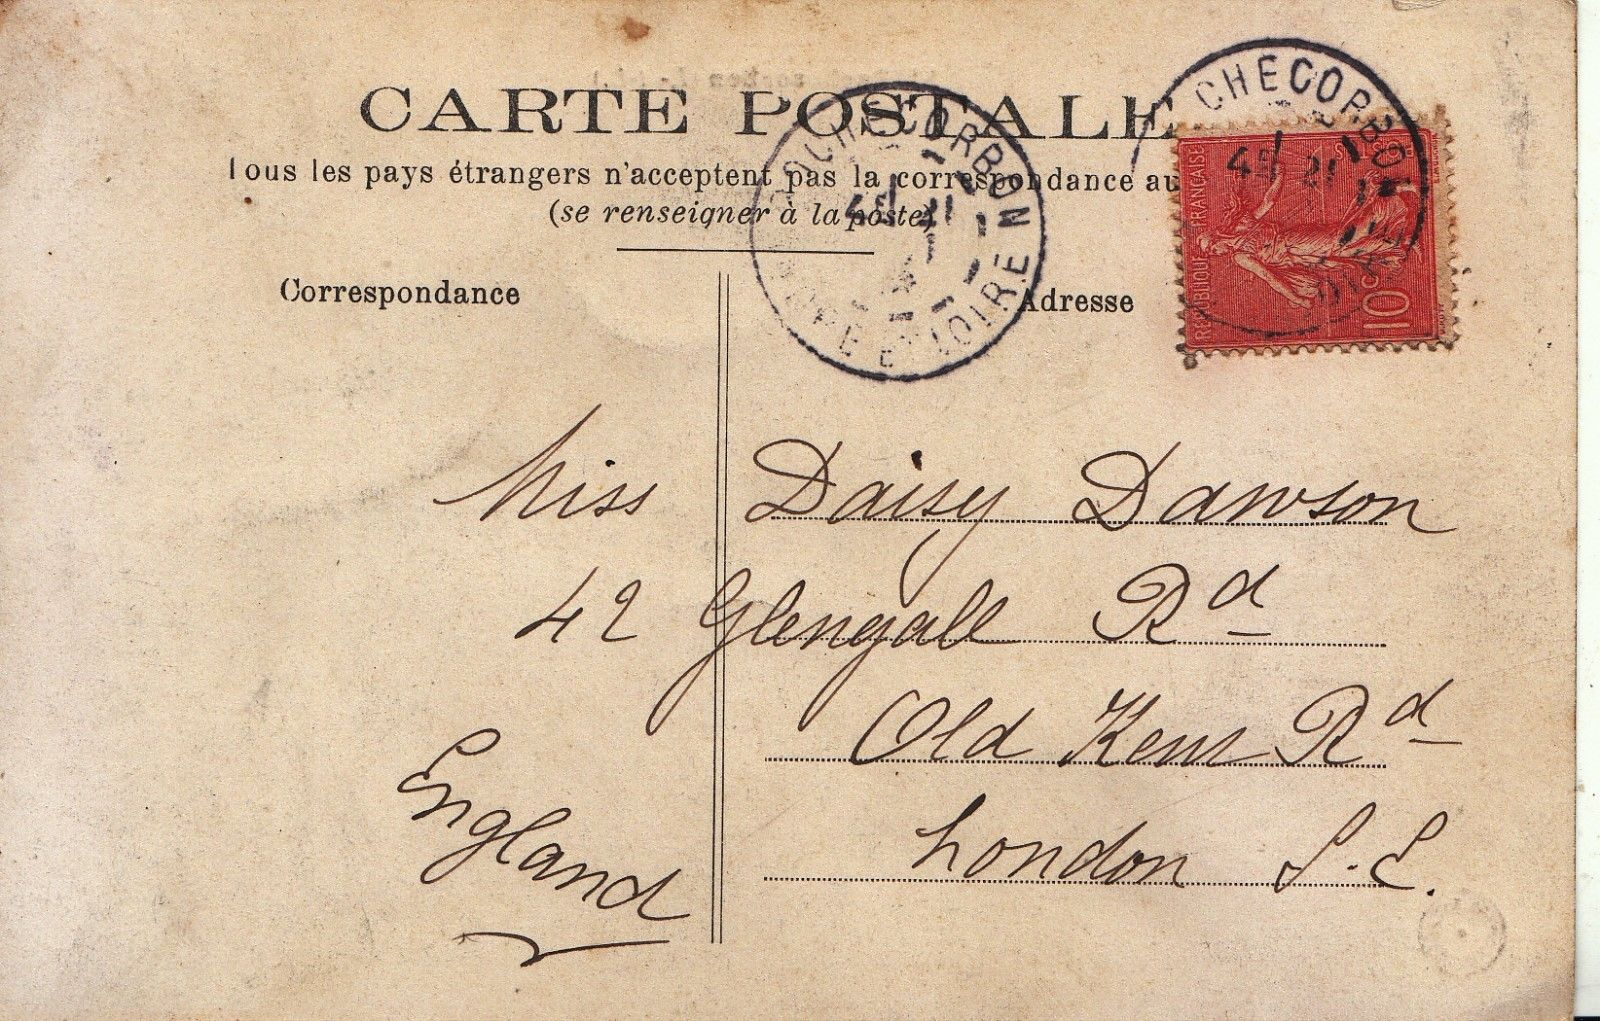 CARTE POSTALE
Tous les pays étrangers n'acceptent pas la correspondance au
(se renseigner à la poste)
Correspondance
Adresse
ROCHECORBON
INDRE ET LOIRE
CHECORBON
REPUBLIQUE FRANÇAISE
10
Miss Daisy Dawson
42 Glengall Rd
Old Kent Rd
London S.E.
England